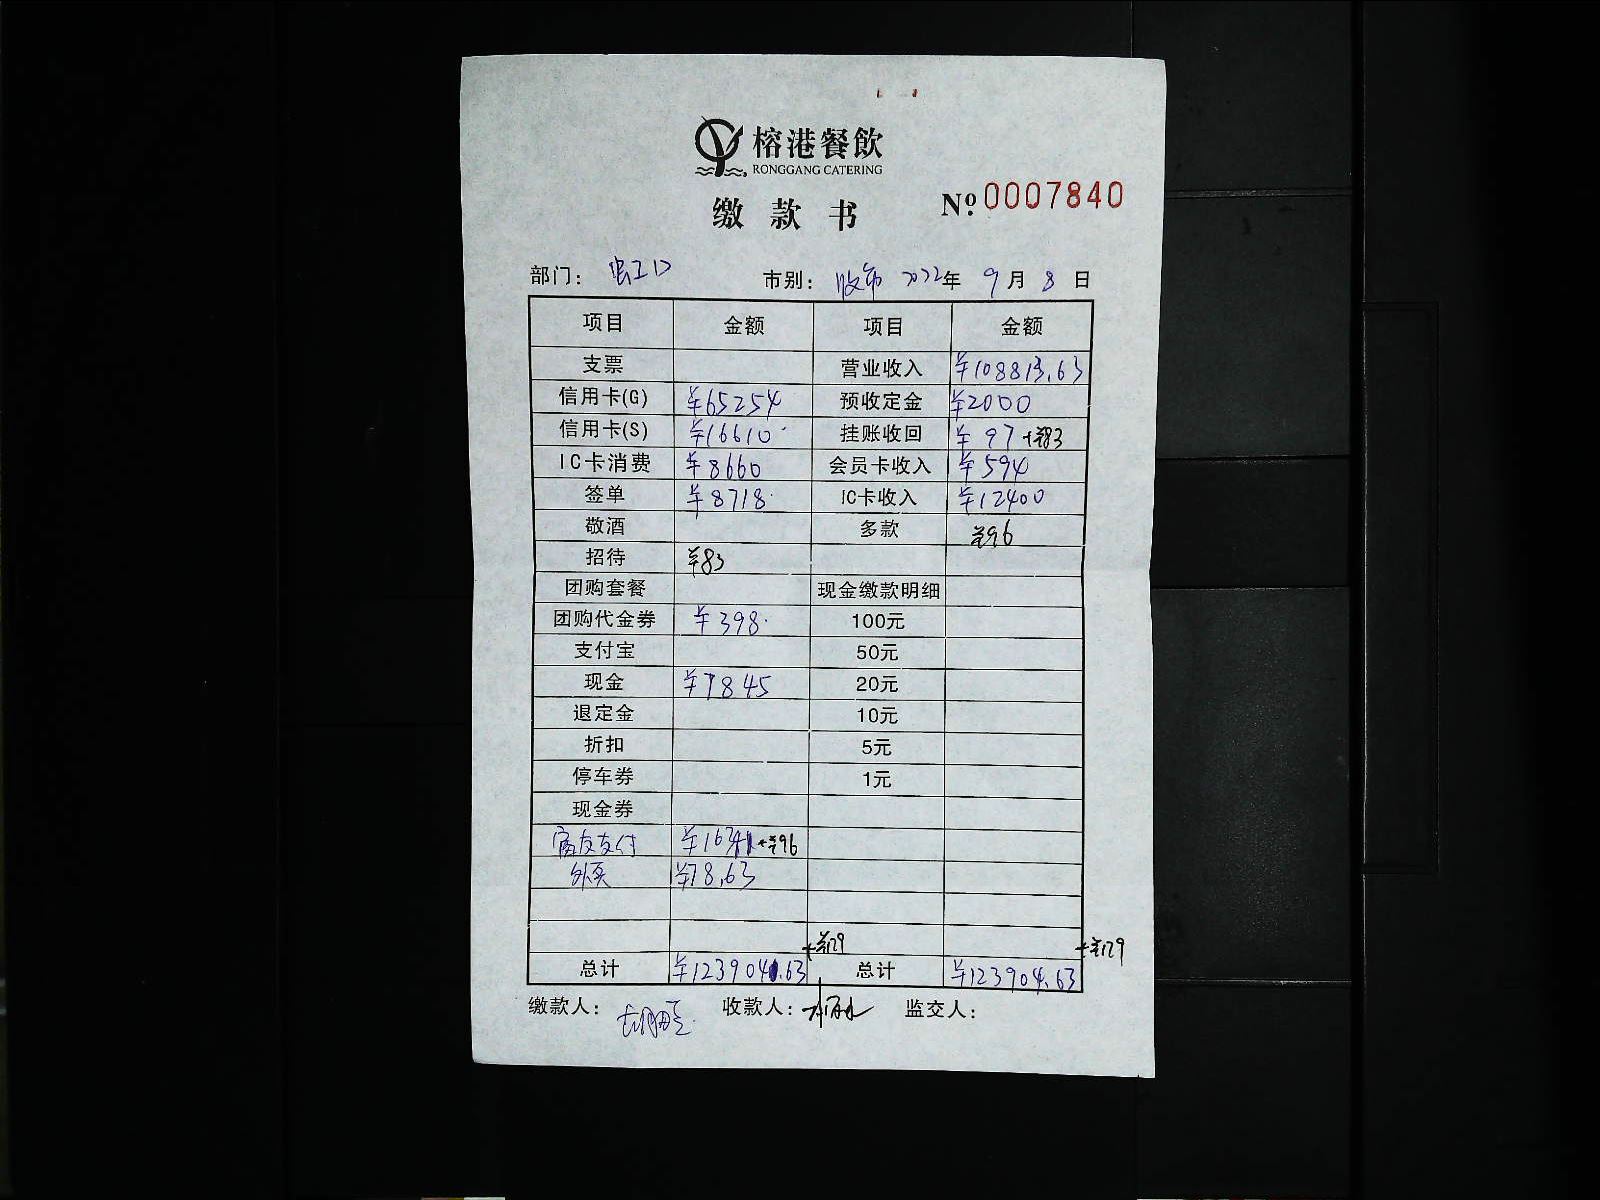 榕港餐飲
RONGGANG CATERING
缴款书 Nº 0007840
部门： 虹口 市别： 收市 2022年 9月 8日
项目 金额 项目 金额
支票 营业收入 ¥108813.63
信用卡(G) ¥65254 预收定金 ¥2000
信用卡(S) ¥16610 挂账收回 ¥97 +¥83
IC卡消费 ¥8660 会员卡收入 ¥594
签单 ¥8718 IC卡收入 ¥12400
敬酒 多款 ¥96
招待 ¥83
团购套餐 现金缴款明细
团购代金券 ¥398 100元
支付宝 50元
现金 ¥7845 20元
退定金 10元
折扣 5元
停车券 1元
现金券
支付 +¥96
外卖 ¥78.63
+¥179 +¥179
总计 ¥123904.63 总计 ¥123904.63
缴款人： 收款人： 监交人：